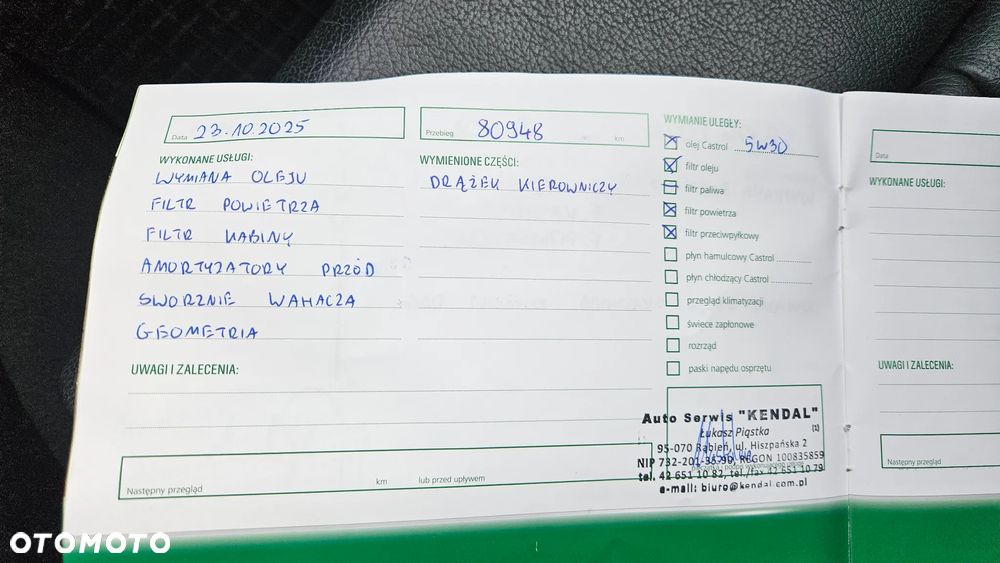 Data 23.10.2025
Przebieg 80948 km
WYKONANE USŁUGI:
WYMIANA OLEJU
FILTR POWIETRZA
FILTR KABINY
AMORTYZATORY PRZÓD
SWORZNIE WAHACZA
GEOMETRIA
WYMIENIONE CZĘŚCI:
DRĄŻEK KIEROWNICZY
WYMIANIE ULEGŁY:
olej Castrol 5W30
filtr oleju
filtr paliwa
filtr powietrza
filtr przeciwpyłkowy
płyn hamulcowy Castrol
płyn chłodzący Castrol
przegląd klimatyzacji
świece zapłonowe
rozrząd
paski napędu osprzętu
UWAGI I ZALECENIA:
Następny przegląd km lub przed upływem
Auto Serwis "KENDAL"
Łukasz Piąstka (2)
95-070 Rąbień, ul. Hiszpańska 2
NIP 732-201-38-90, REGON 100835859
tel. 42 651 10 82, tel./fax 42 651 10 79
e-mail: biuro@kendal.com.pl
Data
WYKONANE USŁUGI:
UWAGI I ZALECENIA:
Następny przegląd
OTOMOTO